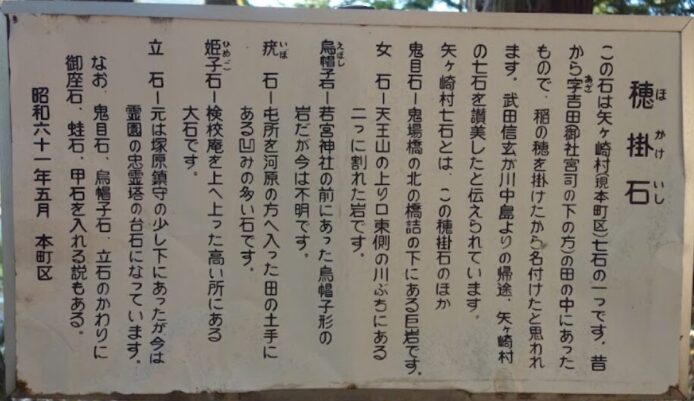 穂掛石
ほかけいし
この石は矢ヶ崎村(現本町区)七石の一つです。昔
から字吉田御社宮司の下の方の田の中にあった
あざ
もので、稲の穂を掛けたから名付けたと思われ
ます。武田信玄が川中島よりの帰途、矢ヶ崎村
の七石を讃美したと伝えられています。
矢ヶ崎村七石とは、この穂掛石のほか
鬼目石ー鬼場橋の北の橋詰の下にある巨岩です。
女 石ー天王山の上り口東側の川ぶちにある
二つに割れた岩です。
烏帽子石ー若宮神社の前にあった烏帽子形の
えぼし
岩だが今は不明です。
疣 石ー屯所を河原の方へ入った田の土手に
いぼ
ある凹みの多い石です。
姫子石ー検校庵を上へ上った高い所にある
ひめご
大石です。
立 石ー元は塚原鎮守の少し下にあったが今は
霊園の忠霊塔の台石になっています。
なお、鬼目石、烏帽子石、立石のかわりに
御座石、蛙石、甲石を入れる説もある。
昭和六十一年五月 本町区